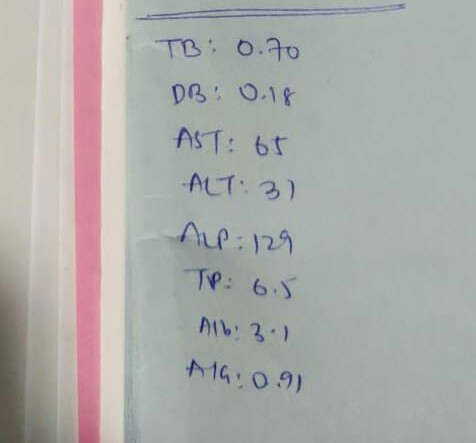 TB: 0.70
DB: 0.18
AST: 65
ALT: 31
ALP: 129
TP: 6.5
Alb: 3.1
A/G: 0.91